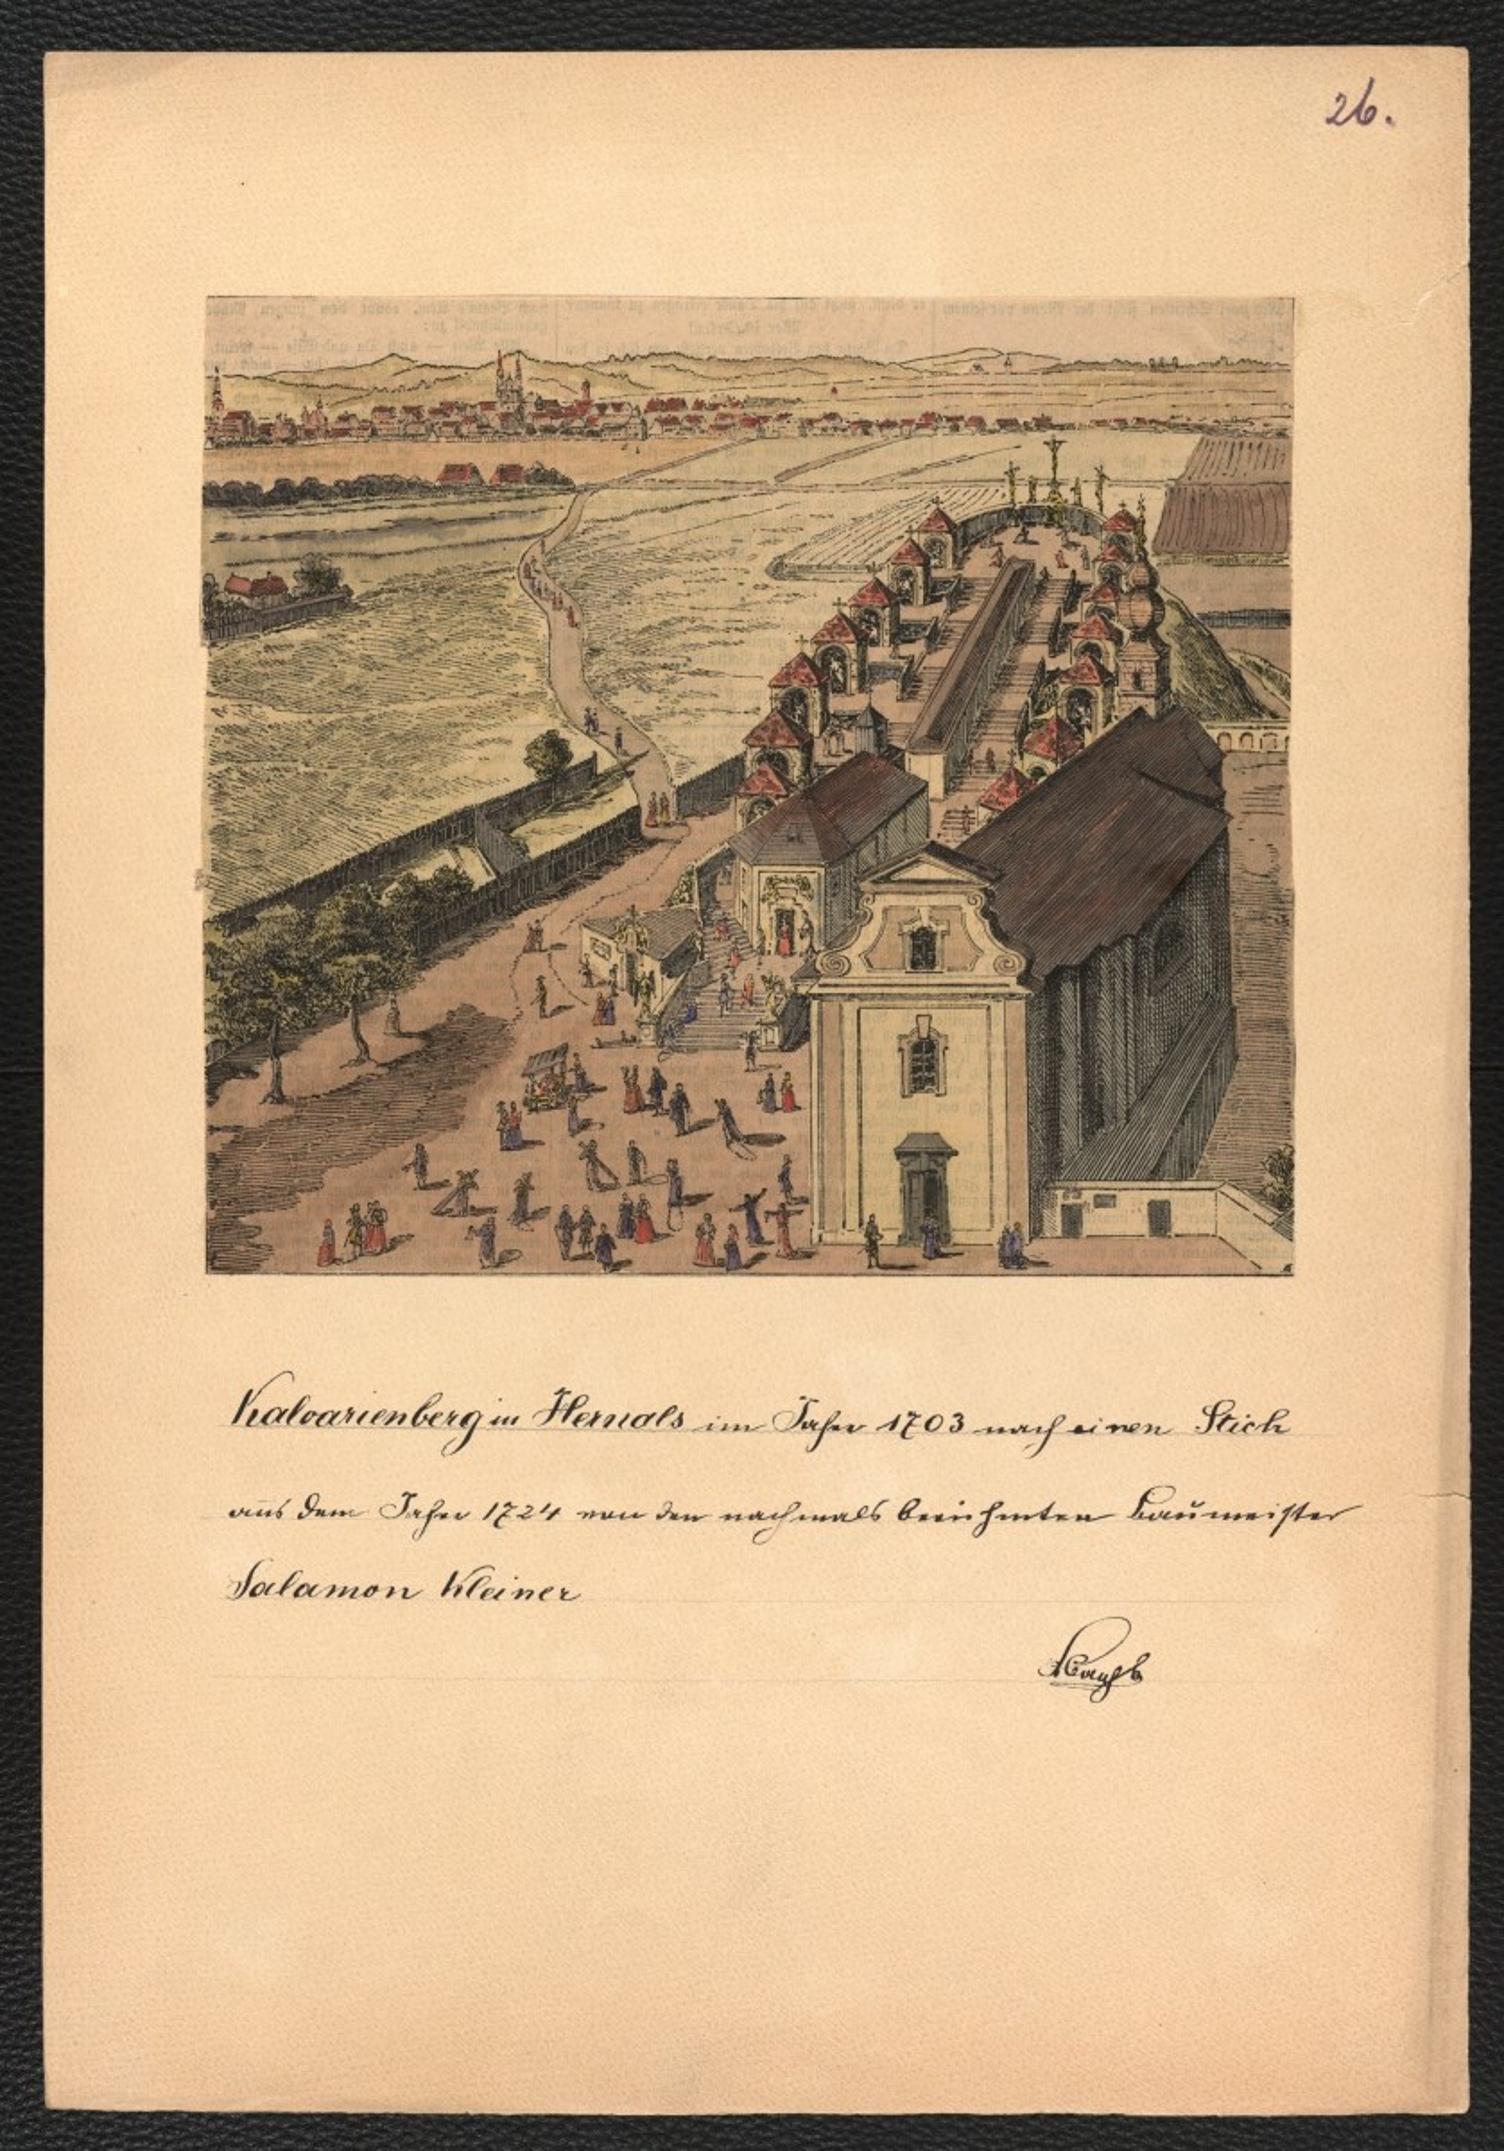 26.
Kalvarienberg in Hernals im Jahre 1703 nach einen Stich
aus dem Jahre 1724 von den nachmals berühmten Baumeister
Salamon Kleiner